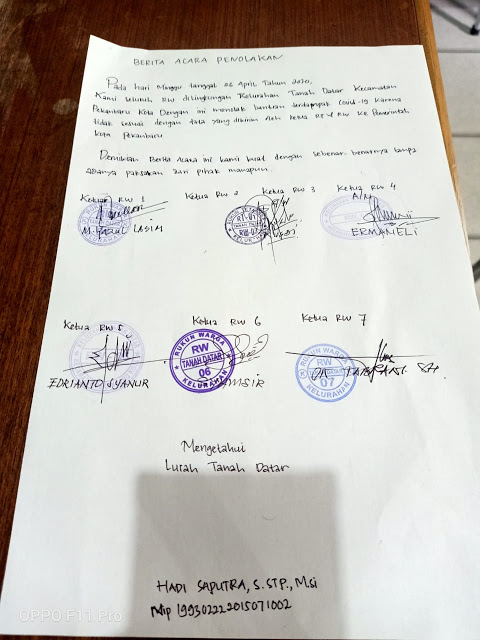 BERITA ACARA PENOLAKAN
Pada hari Minggu tanggal 26 April Tahun 2020,
Kami seluruh RW dilingkungan Kelurahan Tanah Datar Kecamatan
Pekanbaru Kota Dengan ini menolak bantuan terdampak Covid-19 karena
tidak sesuai dengan data yang dikirim oleh Ketua RT & RW Ke Pemerintah
Kota Pekanbaru.
Demikian Berita Acara ini kami buat dengan sebenar-benarnya tanpa
adanya paksaan dari pihak manapun.
Ketua RW 1 Ketua RW 2 Ketua RW 3 Ketua RW 4
A/N
TANAH DATAR
KELURAHAN
ERMANELI
Ketua RW 5 Ketua RW 6 Ketua RW 7
RUKUN WARGA
RW
TANAH DATAR
06
KELURAHAN
RUKUN WARGA
RW
TANAH DATAR
07
KELURAHAN
EDRIANTO SYANUR
Mengetahui
Lurah Tanah Datar
HADI SAPUTRA, S.STP., M.si
Nip 199302222015071002
OPPO F11 Pro